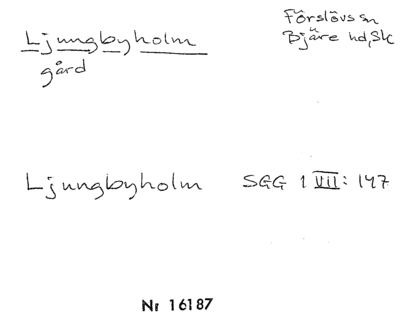 Ljungbyholm
gård
Förslövs sn
Bjäre hd, Sk
Ljungbyholm SGG 1 VII: 147
Nr 16187